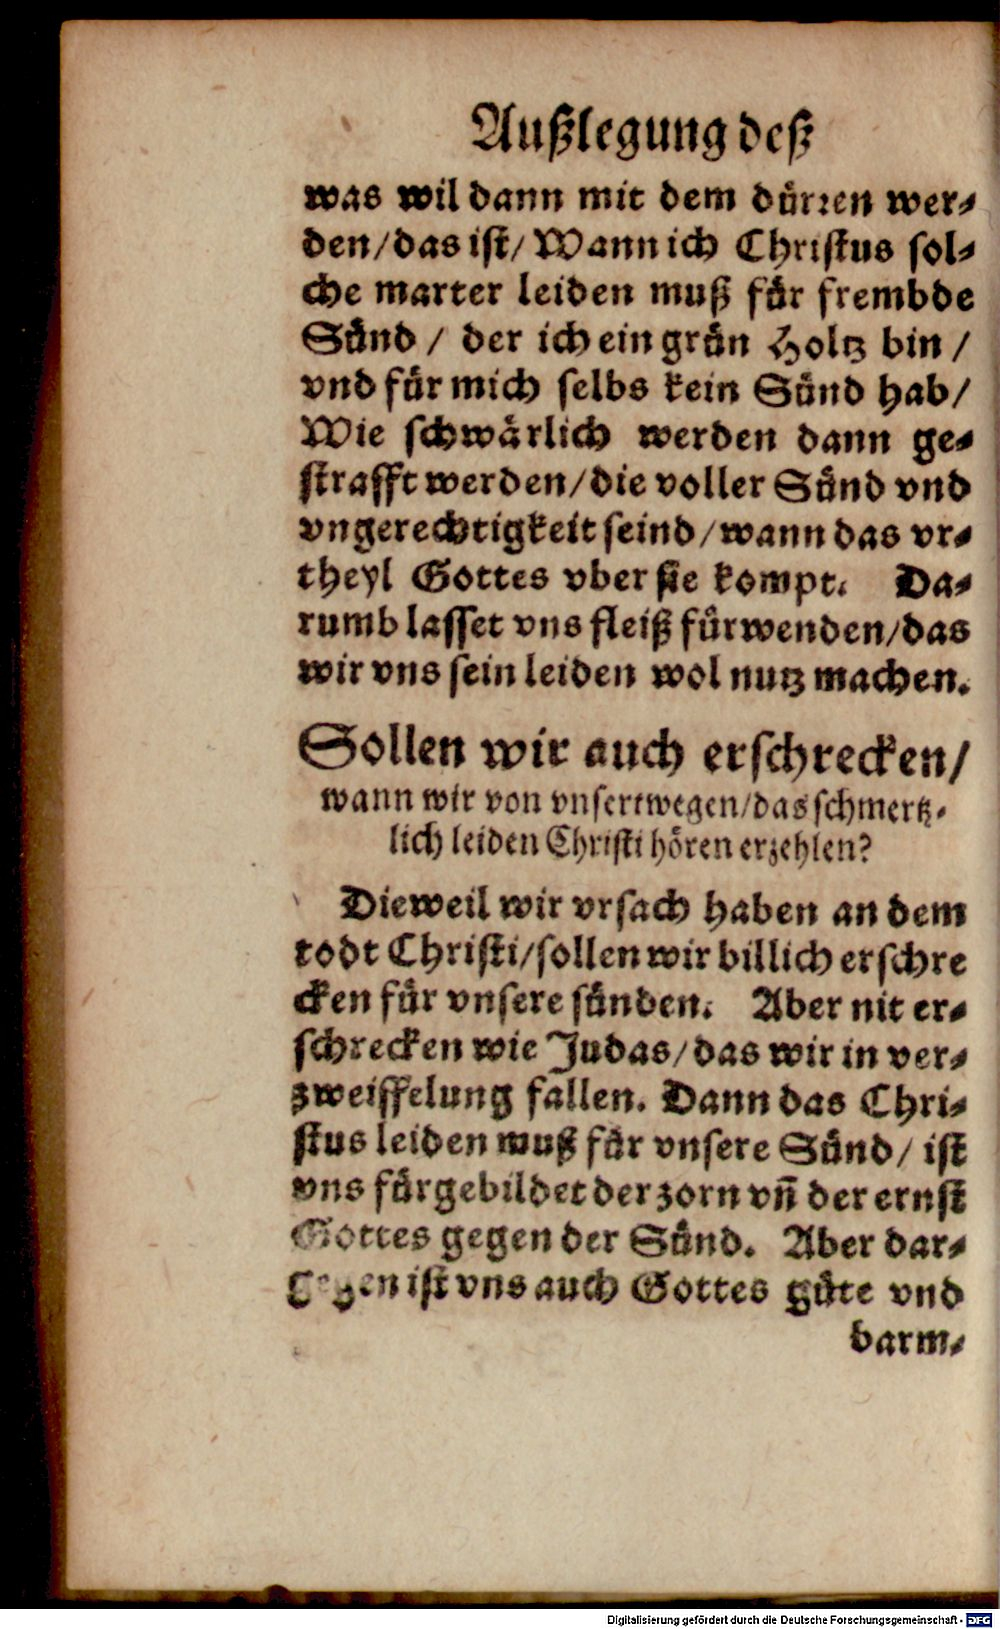 Außlegung deß
was wil dann mit dem dürren wer⸗
den/das ist/ Wann ich Christus sol⸗
che marter leiden muß für frembde
Sünd / der ich ein grün Holtz bin /
vnd für mich selbs kein Sünd hab/
Wie schwärlich werden dann ge⸗
strafft werden/die voller Sünd vnd
vngerechtigkeit seind/wann das vr⸗
theyl Gottes vber sie kompt. Da⸗
rumb lasset vns fleiß fürwenden/das
wir vns sein leiden wol nutz machen.
Sollen wir auch erschrecken/
wann wir von vnsertwegen/das schmertz⸗
lich leiden Christi hören erzehlen?
Dieweil wir vrsach haben an dem
todt Christi/sollen wir billich erschre
cken für vnsere sünden. Aber nit er⸗
schrecken wie Judas/das wir in ver⸗
zweiffelung fallen. Dann das Chri⸗
stus leiden muß für vnsere Sünd/ ist
vns fürgebildet der zorn vn̄ der ernst
Gottes gegen der Sünd. Aber dar⸗
gegen ist vns auch Gottes güte vnd
barm⸗
Digitalisierung gefördert durch die Deutsche Forschungsgemeinschaft - DFG